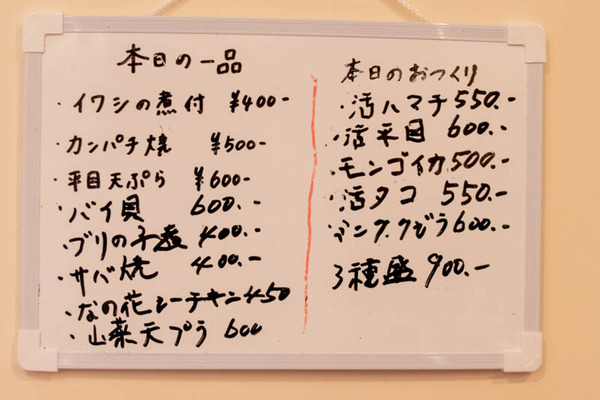 本日の一品
・イワシの煮付 ¥400-
・カンパチ焼 ¥500-
・平目天ぷら ¥600-
・バイ貝 600.-
・ブリの子煮 400.-
・サバ焼 400.-
・なの花シーチキン 450
・山菜天プラ 600
本日のおつくり
・活ハマチ 550.-
・活平目 600.-
・モンゴイカ 500.-
・活タコ 550.-
600.-
3種盛 900.-